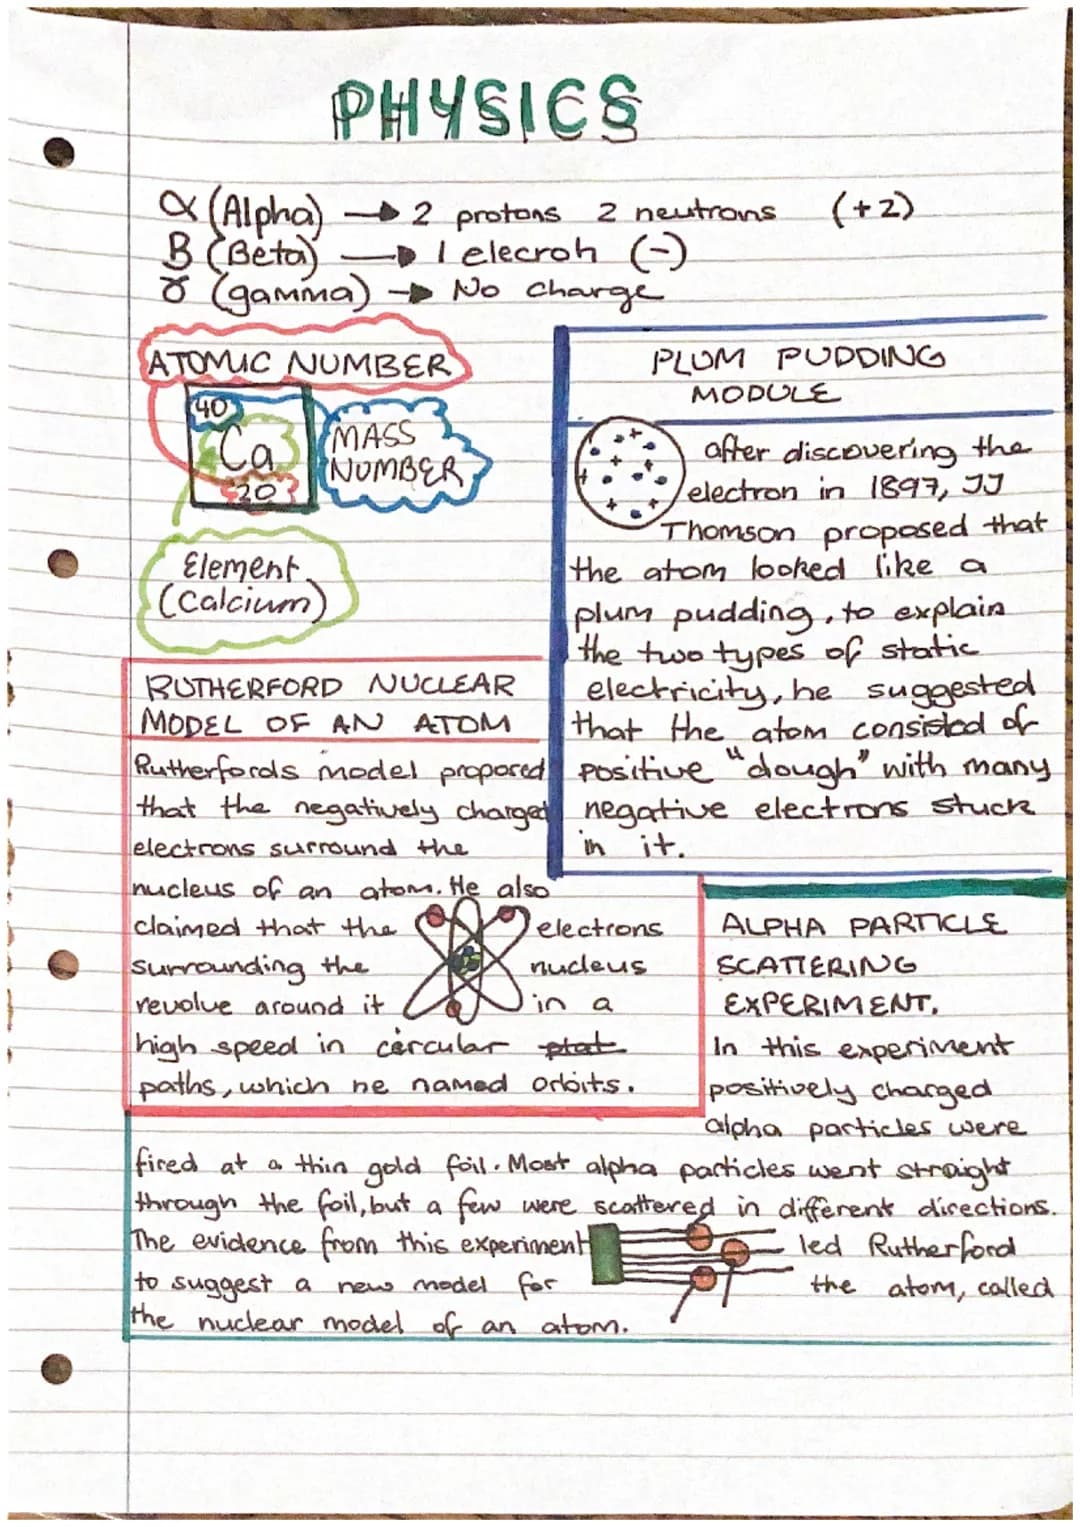 PHYSICS
α (Alpha) → 2 protons 2 neutrons (+2)
B (Beta) → 1 elecroh (-)
γ (gamma) → No charge
ATOMIC NUMBER
40
Ca
20
MASS
NUMBER
Element
(Calcium)
PLUM PUDDING
MODULE
after discovering the
electron in 1897, JJ
Thomson proposed that
the atom looked like a
plum pudding, to explain
the two types of static
electricity, he suggested
that the atom consisted of
positive "dough" with many
negative electrons stuck
in it.
RUTHERFORD NUCLEAR
MODEL OF AN ATOM
Rutherfords model proposed
that the negatively charged
electrons surround the
nucleus of an atom. He also
claimed that the electrons
surrounding the nucleus
revolve around it in a
high speed in circular plat
paths, which he named orbits.
ALPHA PARTICLE
SCATTERING
EXPERIMENT.
In this experiment
positively charged
alpha particles were
fired at a thin gold foil. Most alpha particles went straight
through the foil, but a few were scattered in different directions.
The evidence from this experiment led Rutherford
to suggest a new model for the atom, called
the nuclear model of an atom.